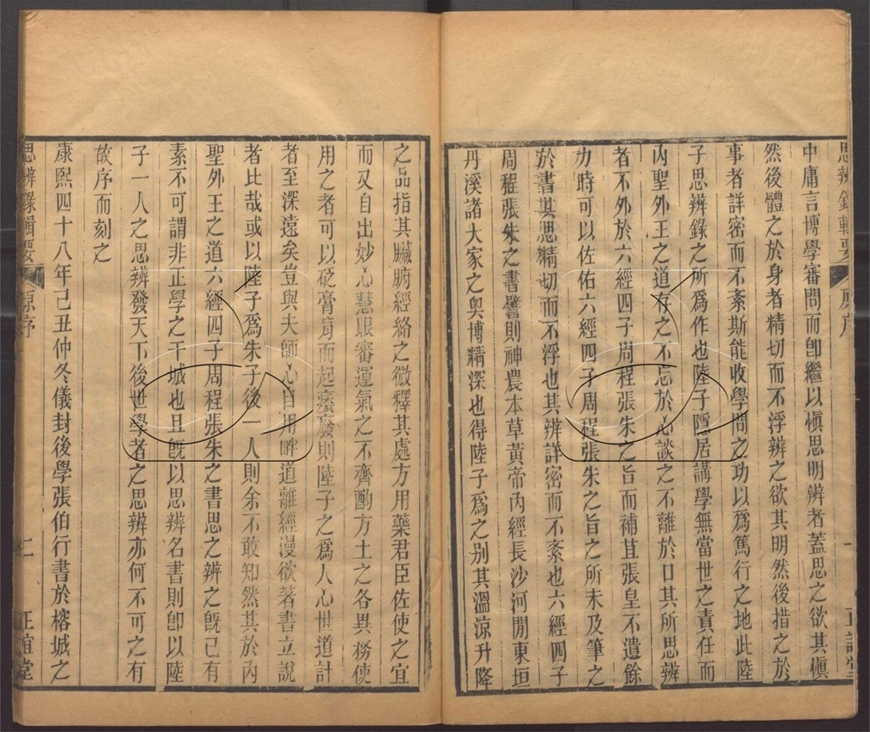 思辨錄輯要 原序 一 正誼堂
中庸言博學審問而卽繼以愼思明辨者蓋思之欲其愼
然後體之於身者精切而不浮辨之欲其明然後措之於
事者詳密而不紊斯能收學問之功以爲篤行之地此陸
子思辨錄之所爲作也陸子隱居講學無當世之責任而
內聖外王之道存之不忘於心談之不離於口其所思辨
者不外於六經四子周程張朱之旨而補苴張皇不遺餘
力時可以佐佑六經四子周程張朱之旨之所未及筆之
於書其思精切而不浮也其辨詳密而不紊也六經四子
周程張朱之書譬則神農本草黃帝內經長沙河閒東垣
丹溪諸大家之奧博精深也得陸子爲之別其溫涼升降
之品指其臟腑經絡之微釋其處方用藥君臣佐使之宜
而又自出妙心慧眼審運氣之不齊酌方土之各異務使
用之者可以砭膏肓而起廢則陸子之爲人心世道計
者至深遠矣豈與夫師心自用畔道離經漫欲著書立說
者比哉或以陸子爲朱子後一人則余不敢知然其於內
聖外王之道六經四子周程張朱之書思之辨之旣已有
素不可謂非正學之干城也且旣以思辨名書則卽以陸
子一人之思辨發天下後世學者之思辨亦何不可之有
故序而刻之
康熙四十八年己丑仲冬儀封後學張伯行書於榕城之
思辨錄輯要 原序 二 正誼堂